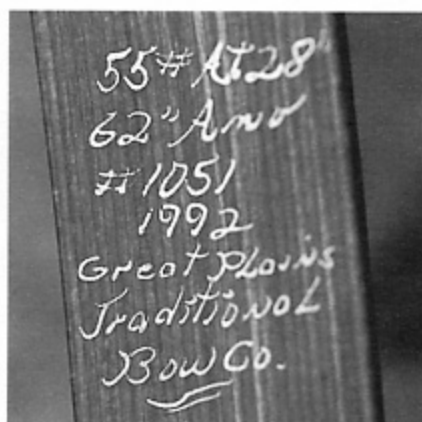 55# At 28"
62" Amo
#1051
1992
Great Plains
Traditional
Bow Co.